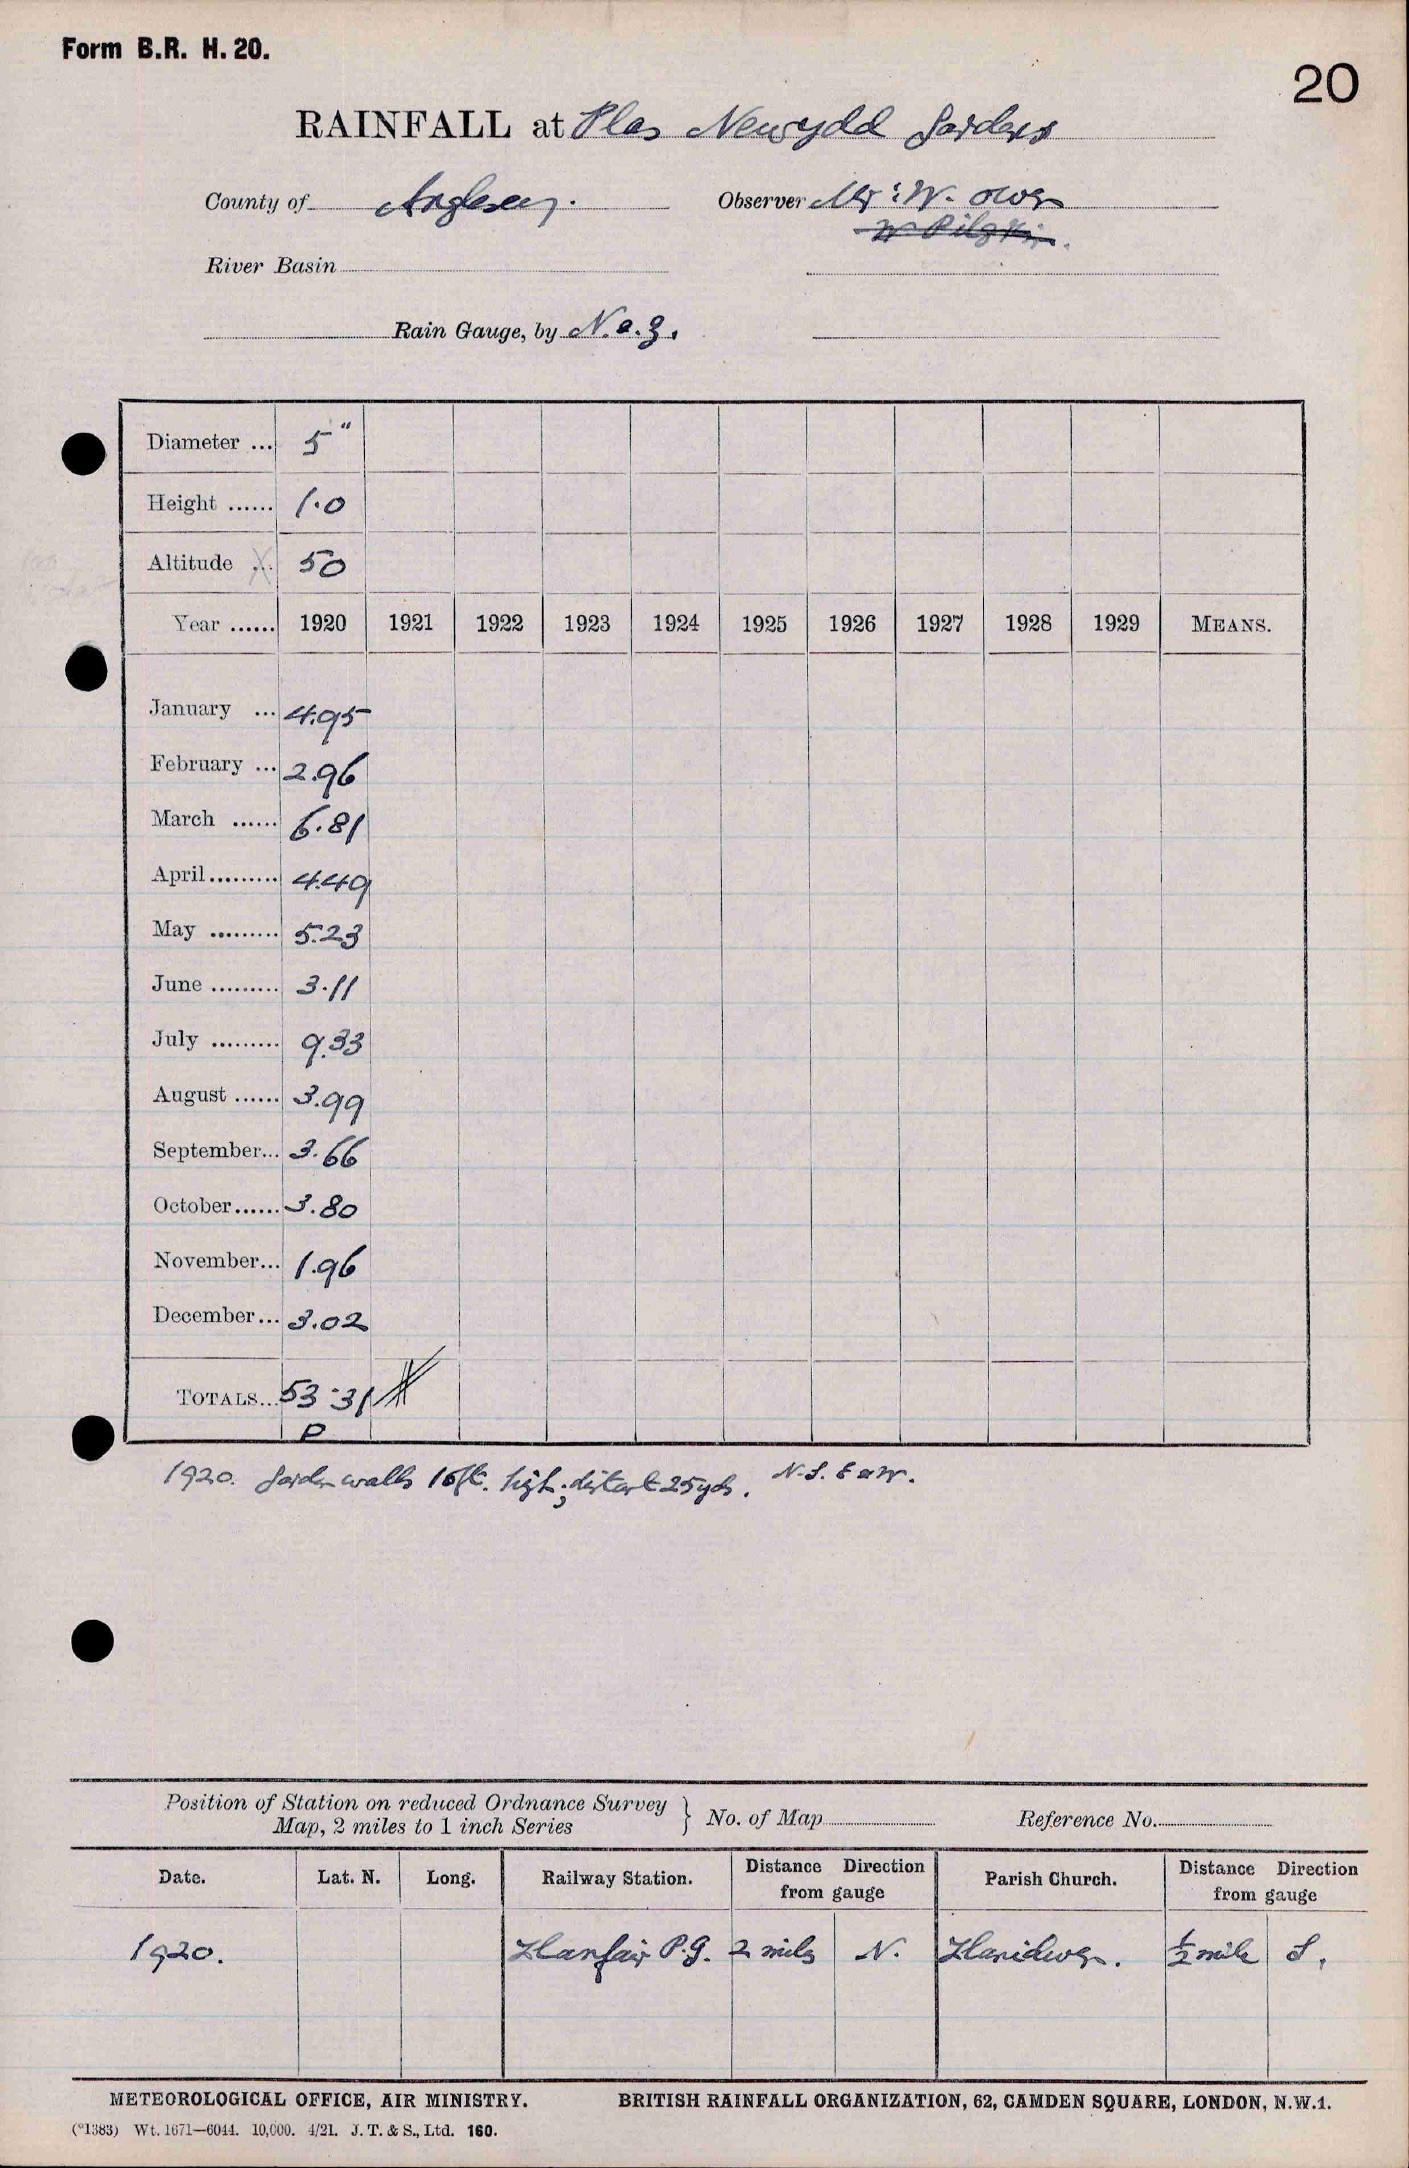 Form B.R. H. 20.
20
RAINFALL at Plas Newydd Gardens
County of Anglesey. Observer Mr. W. Owen
River Basin
Rain Gauge, by N. & Z.
Diameter ... 5"
Height ...... 1.0
Altitude ... 50
Year ...... 1920 1921 1922 1923 1924 1925 1926 1927 1928 1929 MEANS.
January ... 4.95
February ... 2.96
March ...... 6.81
April......... 4.49
May ......... 5.23
June ......... 3.11
July ......... 9.33
August ...... 3.99
September... 3.66
October...... 3.80
November... 1.96
December... 3.02
TOTALS... 53.31
P
1920. Garden walls 16ft. high; distant 25yds. N.S. E & W.
Position of Station on reduced Ordnance Survey
Map, 2 miles to 1 inch Series } No. of Map Reference No.
Date. Lat. N. Long. Railway Station. Distance Direction from gauge Parish Church. Distance Direction from gauge
1920. Llanfair P.G. 2 miles N. Llanidwen. ½ mile S.
METEOROLOGICAL OFFICE, AIR MINISTRY. BRITISH RAINFALL ORGANIZATION, 62, CAMDEN SQUARE, LONDON, N.W.1.
(*1383) Wt. 1671—6044. 10,000. 4/21. J. T. & S., Ltd. 160.